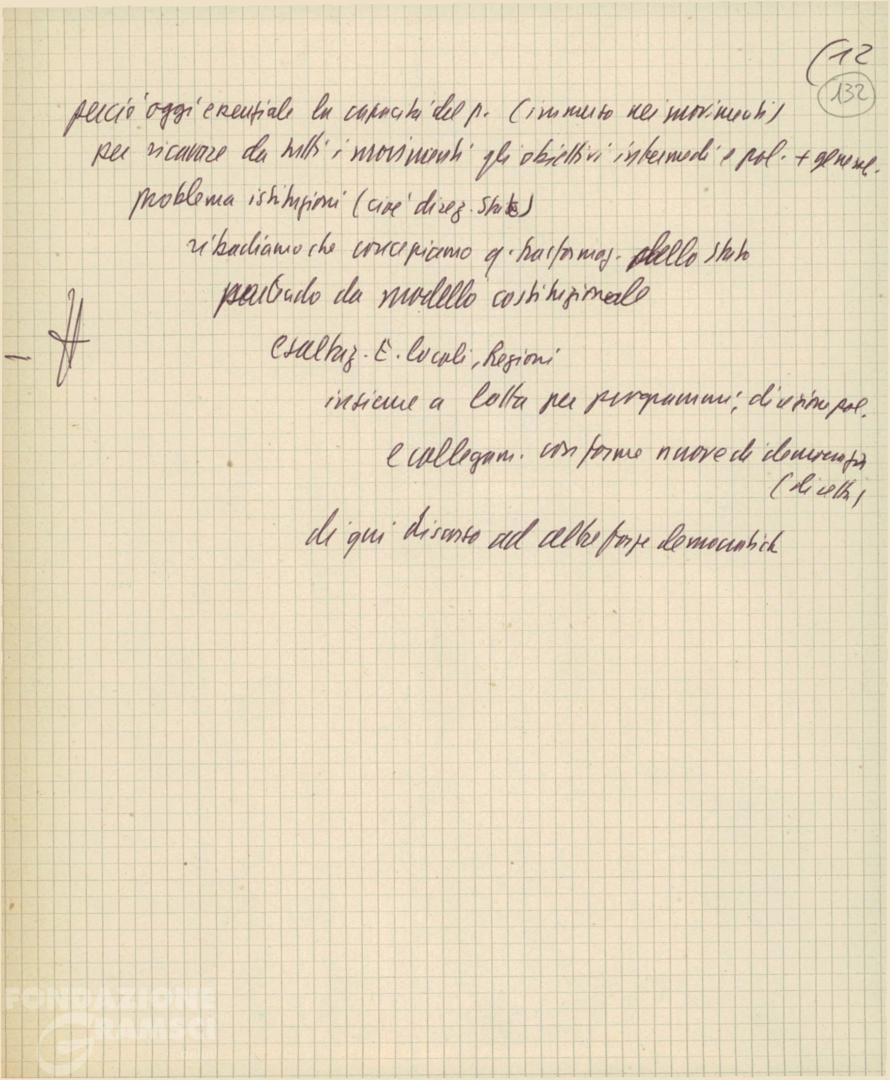 (12
132
perciò oggi essenziale la capacità del p. (immerso nei movimenti)
per ricavare da tutti i movimenti gli obiettivi intermedi e pol. + general.
problema istituzioni (cioè direz. Stato)
ribadiamo che concepiamo q. trasformaz. dello Stato
partendo da modello costituzionale
esaltaz. E. locali, Regioni
insieme a lotta per programmi, direzione pol.
e collegam. con forme nuove di democrazia
(diretta)
di qui discorso ad altre forze democratich
FONDAZIONE
GRAMSCI